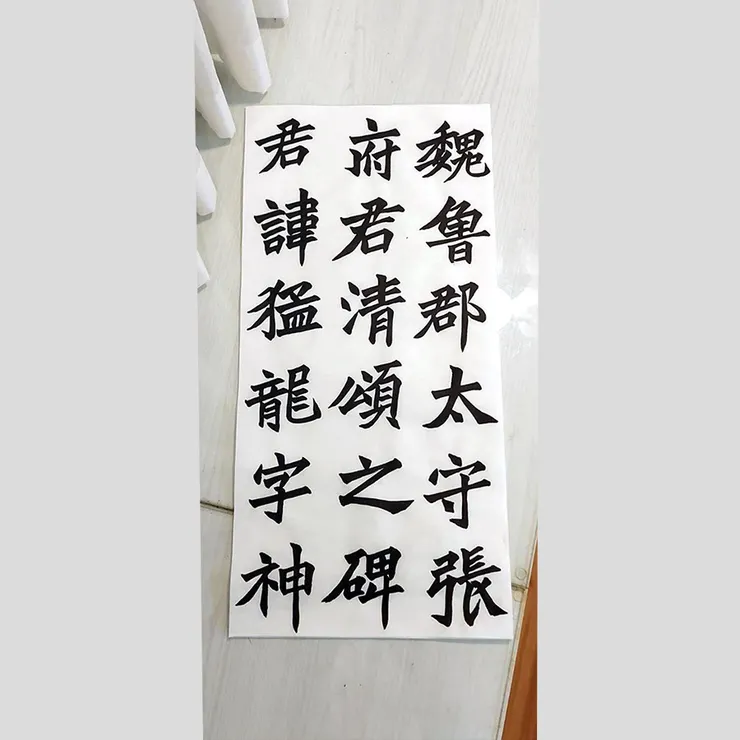 魏魯郡太守張
府君清頌之碑
君諱猛龍字神